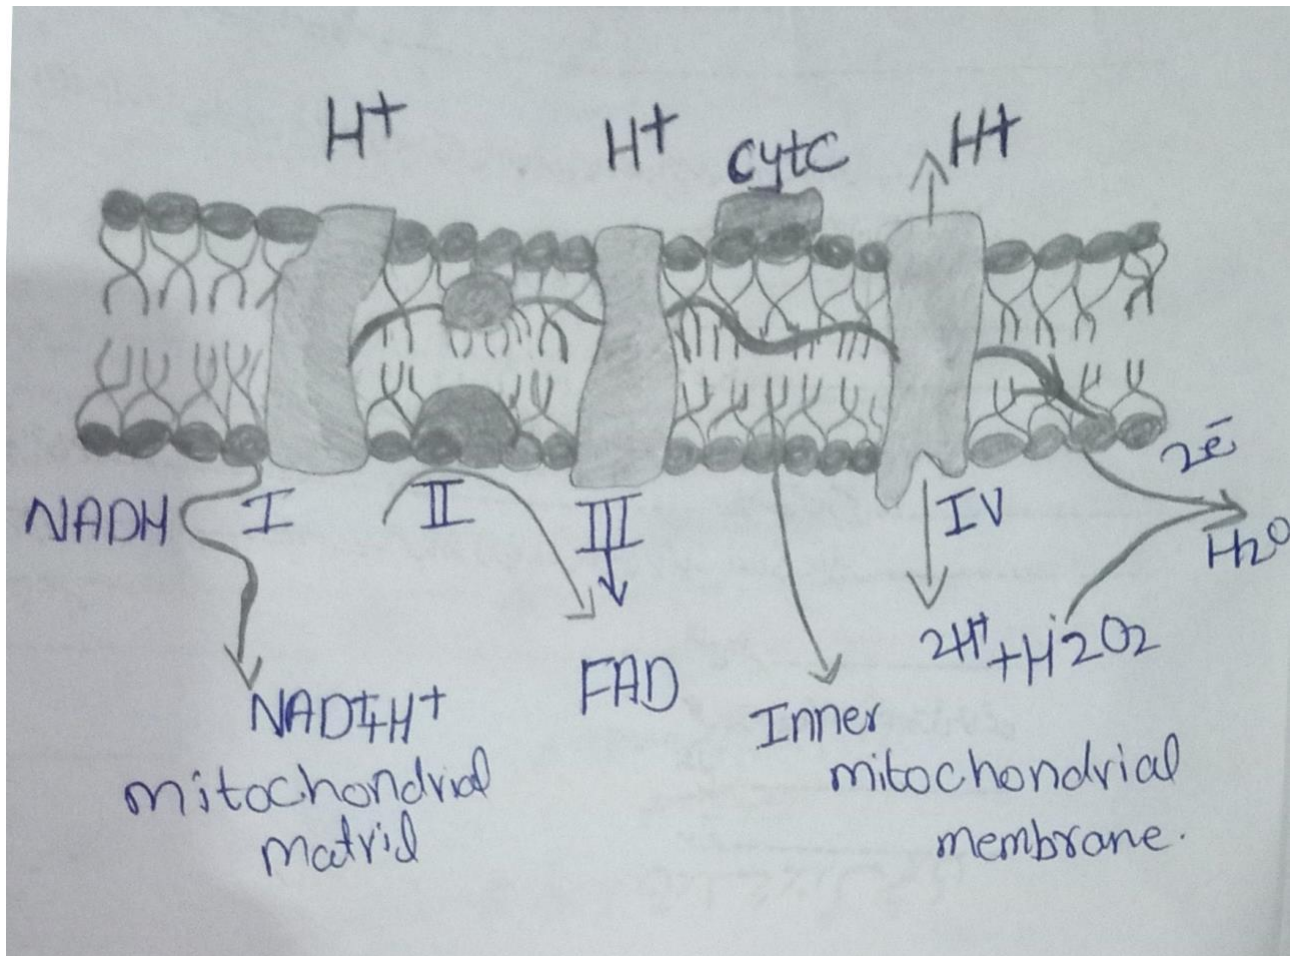 H+
H+
cytC
H+
NADH
I
II
III
IV
2e-
H2O
2H+ + H2O2
FAD
NAD++H+
Inner
mitochondrial
membrane.
mitochondrial
matrid